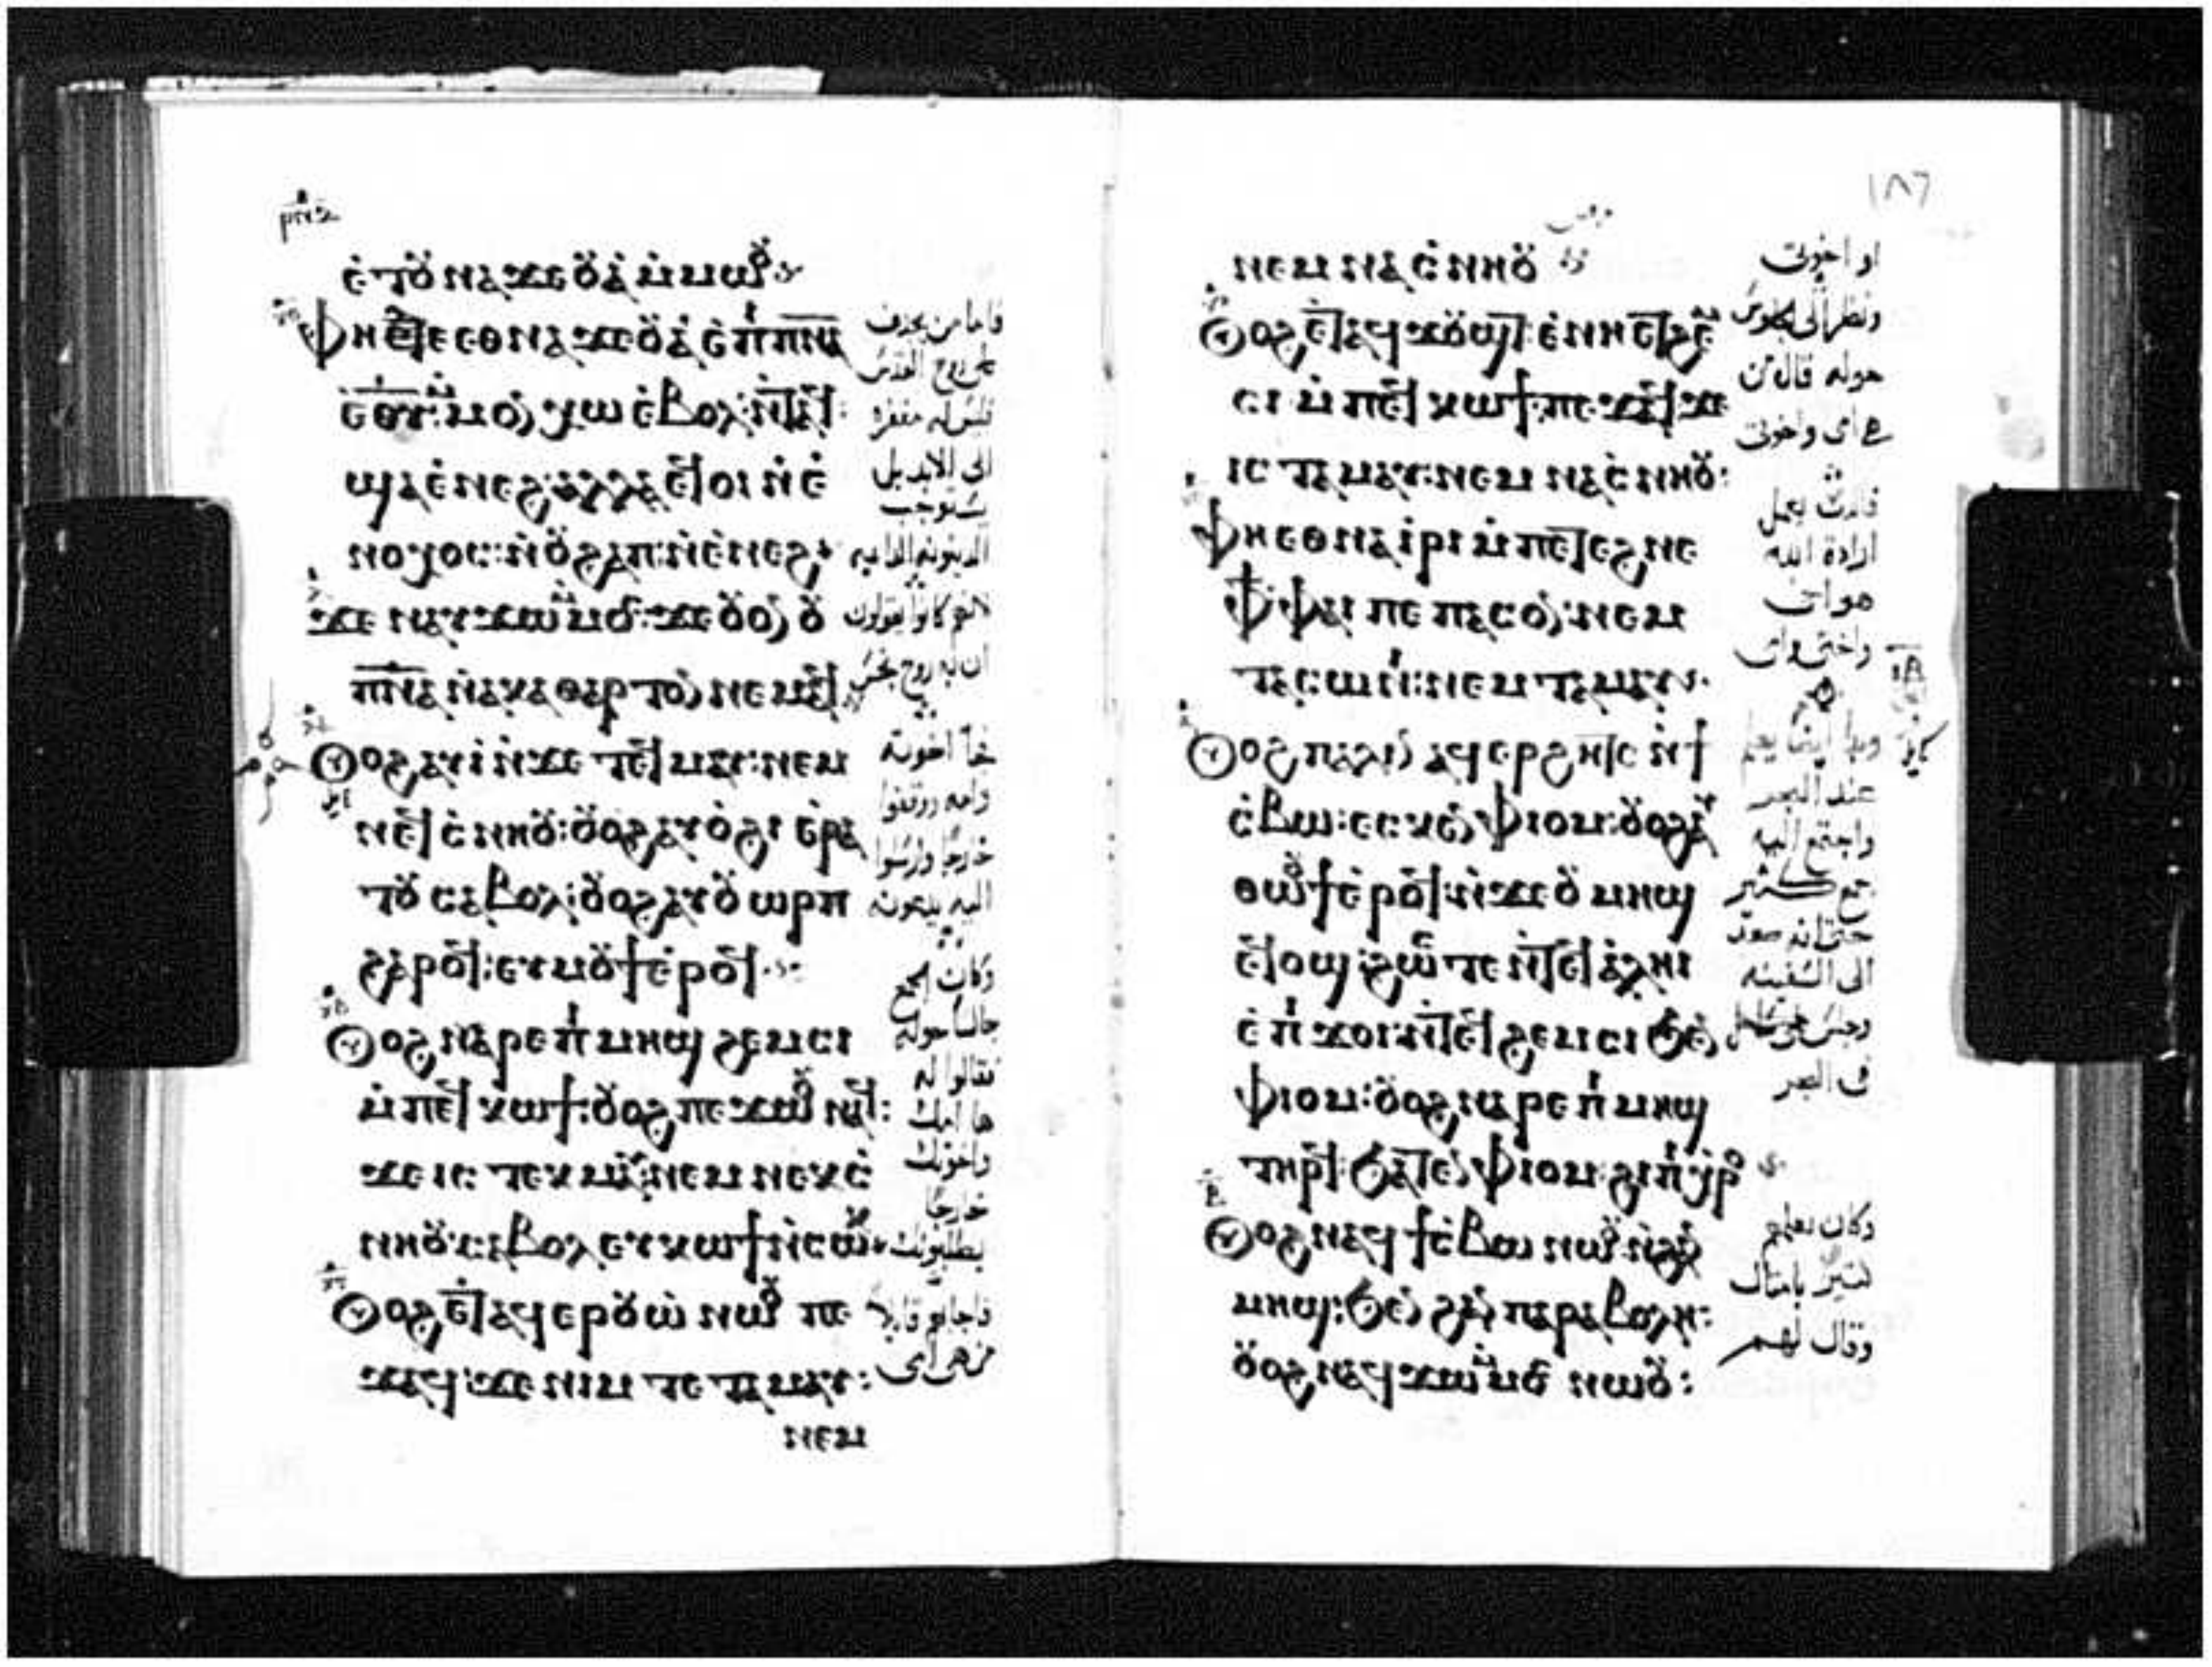 ⲉ̀ⲧⲟⲩⲛⲁϫⲉⲟⲩⲁ̀ ⲙ̀ⲙⲱⲟⲩ
ⲫⲏ ⲇⲉ ⲉⲑⲛⲁϫⲉⲟⲩⲁ̀ ⲉ̀ⲡⲓⲡⲛⲁ
ⲉ̀ⲑⲩ: ⲙ̀ⲙⲟⲛ ⲭⲱ ⲉ̀ⲃⲟⲗ ⲛ̀ⲧⲁϥ:
ϣⲁ ⲉ̀ⲛⲉϩ: ⲁⲗⲗⲁ ϥ̀ⲟⲓ ⲛ̀ⲉ̀
ⲛⲟⲭⲟⲥ: ⲛ̀ⲟⲩϩⲁⲡ: ⲛ̀ⲉ̀ⲛⲉϩ:
ϫⲉ ⲛⲁⲩϫⲱ ⲙ̀ⲙⲟⲥ: ϫⲉ ⲟⲩⲟⲛ ⲟⲩ
ⲡⲛⲁ ⲛ̀ⲁⲕⲁⲑⲁⲣⲧⲟⲛ ⲛⲉⲙⲁϥ
ⲟⲩⲟϩ ⲁⲩⲓ̀ ⲛ̀ϫⲉ ⲧⲉϥⲙⲁⲩ: ⲛⲉⲙ
ⲛⲉϥⲥ̀ⲛⲏⲟⲩ: ⲟⲩⲟϩ ⲁⲩⲟ̀ϩⲓ ⲉ̀ⲣⲁ
ⲧⲟⲩ ⲥⲁⲃⲟⲗ: ⲟⲩⲟϩ ⲁⲩⲟⲩⲱⲣⲡ
ϩⲁⲣⲟϥ: ⲉⲩⲙⲟⲩϯ ⲉ̀ⲣⲟϥ
ⲟⲩⲟϩ ⲛⲁⲣⲉ ⲡⲓⲙⲏϣ ϩⲉⲙⲥⲓ
ⲙ̀ⲡⲉϥⲕⲱϯ: ⲟⲩⲟϩ ⲡⲉϫⲱⲟⲩ ⲛⲁϥ:
ϫⲉ ⲓⲥ ⲧⲉⲕⲙⲁⲩ: ⲛⲉⲙ ⲛⲉⲕⲥ̀
ⲛⲏⲟⲩ: ⲥⲁⲃⲟⲗ ⲉⲩⲕⲱϯ ⲛ̀ⲥⲱⲕ
ⲟⲩⲟϩ ⲉⲧⲁϥⲉⲣⲟⲩⲱ̀ ⲛⲱⲟⲩ ⲡⲉ
ϫⲁϥ: ϫⲉ ⲛⲓⲙ ⲧⲉ ⲧⲁⲙⲁⲩ:
ⲛⲉⲙ
فاما من يجدف
على روح القدس
فليس له مغفره
الى الابد بل
يستوجب
الدينونه الدايمه
لانهم كانوا يقولون
ان به روح نجس
واخوتك
خارجا
يطلبونك
١٨٦
ⲛⲉⲙ ⲛⲁⲥ̀ⲛⲏⲟⲩ
ⲟⲩⲟϩ ⲉⲧⲁϥϫⲟⲩϣⲧ ⲉ̀ⲛⲏ ⲉⲧϩⲉⲙ
ⲥⲓ ⲙ̀ⲡⲉϥⲕⲱϯ: ⲡⲉϫⲁϥ ϫⲉ
ⲓⲥ ⲧⲁⲙⲁⲩ: ⲛⲉⲙ ⲛⲁⲥ̀ⲛⲏⲟⲩ:
ⲫⲏ ⲉⲑⲛⲁⲓ̀ⲣⲓ ⲙ̀ⲡⲉⲧⲉϩⲛⲉ
ⲫϯ ⲫⲁⲓ ⲡⲉ ⲡⲁⲥⲟⲛ: ⲛⲉⲙ
ⲧⲁⲥⲱⲛⲓ: ⲛⲉⲙ ⲧⲁⲙⲁⲩ
ⲟⲩⲟϩ ⲡⲁⲗⲓⲛ ⲁϥⲉⲣϩⲏⲧⲥ ⲛ̀ϯ
ⲥ̀ⲃⲱ: ⲉⲥⲕⲉⲛ ⲫⲓⲟⲙ: ⲟⲩⲟϩ ⲁⲩ
ⲑⲱⲟⲩϯ ⲉ̀ⲣⲟϥ: ⲛ̀ϫⲉ ⲟⲩⲙⲏϣ
ⲉϥⲟϣ: ϩⲱⲥⲧⲉ ⲛ̀ⲧⲉϥⲁ̀ⲗⲏⲓ
ⲉ̀ⲡⲓϫⲟⲓ: ⲛ̀ⲧⲉϥϩⲉⲙⲥⲓ ϧⲉⲛ
ⲫⲓⲟⲙ: ⲟⲩⲟϩ ⲛⲁⲣⲉ ⲡⲓⲙⲏϣ
ⲧⲏⲣϥ: ϧⲁⲧⲉⲛ ⲫⲓⲟⲙ: ϩⲓ ⲡⲓⲭⲣⲟ
ⲟⲩⲟϩ ⲛⲁϥϯⲥ̀ⲃⲱ ⲛⲱⲟⲩ ⲛ̀ϩⲁⲛ
ⲙⲏϣ: ϧⲉⲛ ϩⲁⲛ ⲡⲁⲣⲁⲃⲟⲗⲏ:
ⲟⲩⲟϩ ⲛⲁϥϫⲱ ⲙ̀ⲙⲟⲥ ⲛⲱⲟⲩ:
او اخوتى
حوله قال من
ارادة الله
هو اخى
واختى وامى
عند البحر
واجتمع اليه
جمع كثير
حتى انه صعد
الى السفينه
فى البحر
وكان يعلمهم
كثير بامثال
وقال لهم